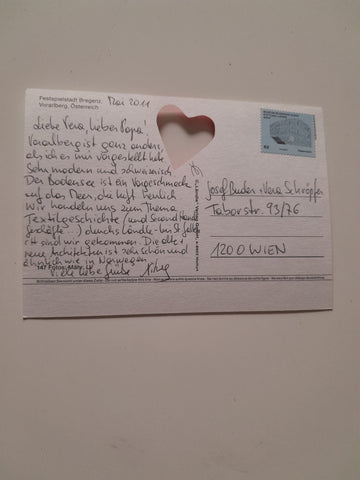 Festspielstadt Bregenz,
Vorarlberg, Österreich
Mai 2011
Liebe Vera, lieber Papa!
Vorarlberg ist ganz anders,
als ich es mir vorgestellt habe
Sehr modern und schweizerisch
Der Bodensee ist ein Vorgeschmack
auf das Meer, die Luft herrlich
Wir handeln uns zum Thema
Textilgeschichte (und Second Hand
...) durchs Ländle - bis St. Gallen
sind wir gekommen. Die alte +
neue Architektur ist sehr schön und
ähnlich wie in Norwegen
Viele liebe Grüße
Josef Buder + Vera Schröpfer
Taborstr. 93/76
1200 WIEN